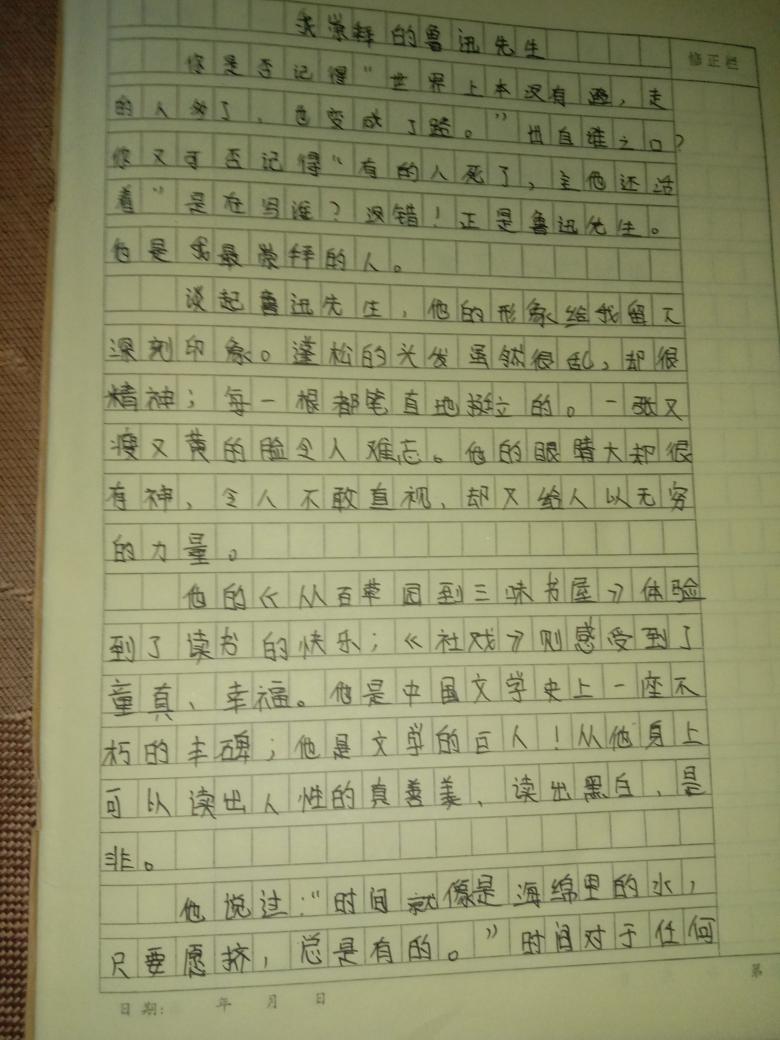 我崇拜的鲁迅先生
修正栏
你是否记得“世界上本没有路，走
的人多了，也变成了路。”出自谁之口？
你又可否记得“有的人死了，主他还活
着”是在写谁？没错！正是鲁迅先生。
他是我最崇拜的人。
谈起鲁迅先生，他的形象给我留下
深刻印象。蓬松的头发虽然很乱，却很
精神；每一根都笔直地挺立的。一张又
瘦又黄的脸令人难忘。他的眼睛大却很
有神，令人不敢直视，却又给人以无穷
的力量。
他的《从百草园到三味书屋》体验
到了读书的快乐；《社戏》则感受到了
童真、幸福。他是中国文学史上一座不
朽的丰碑；他是文学的巨人！从他身上
可以读出人性的真善美、读出黑白、是
非。
他说过：“时间就像是海绵里的水，
只要愿挤，总是有的。”时间对于任何
日期： 年 月 日
第